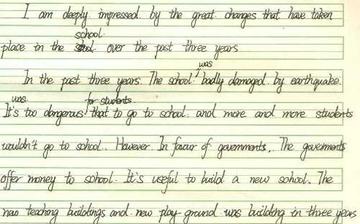 I am deeply impressed by the great changes that have taken
school
place in the over the past three years
was
In the past three years. The school badly damaged by earthquake.
was for students
It's too dangerous that to go to school. and more and more students
wouldn't go to school. However In favour of governments,. The goverments
offer money to school. It's useful to build a new school. The
new teaching buildings and new play-ground was building in three years